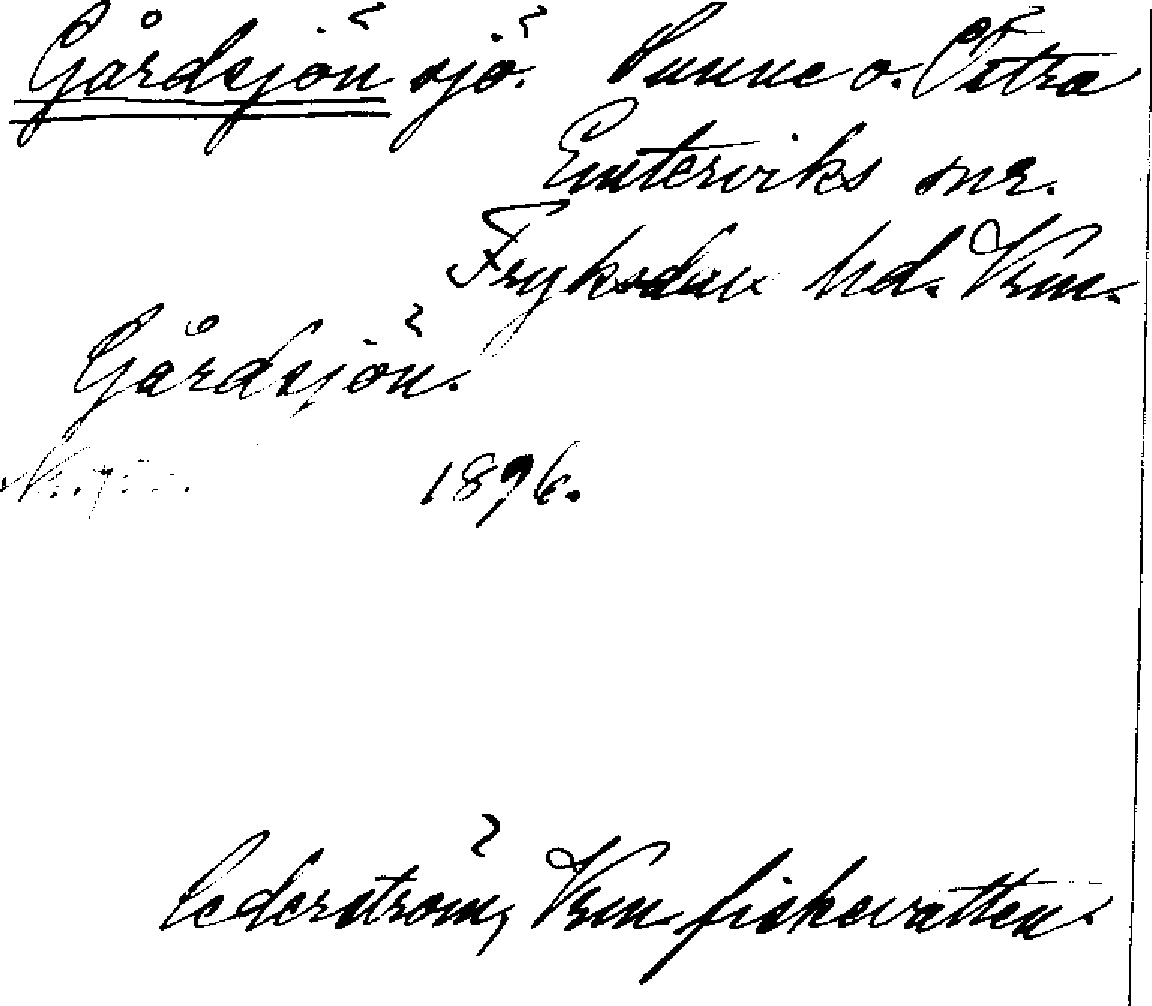 Gårdsjön sjö. Sunne o. Östra
Emterviks snr.
Fryksdals hd. Vrm.
Gårdsjön.
1896.
Cederström, Vrm. fiskevatten.